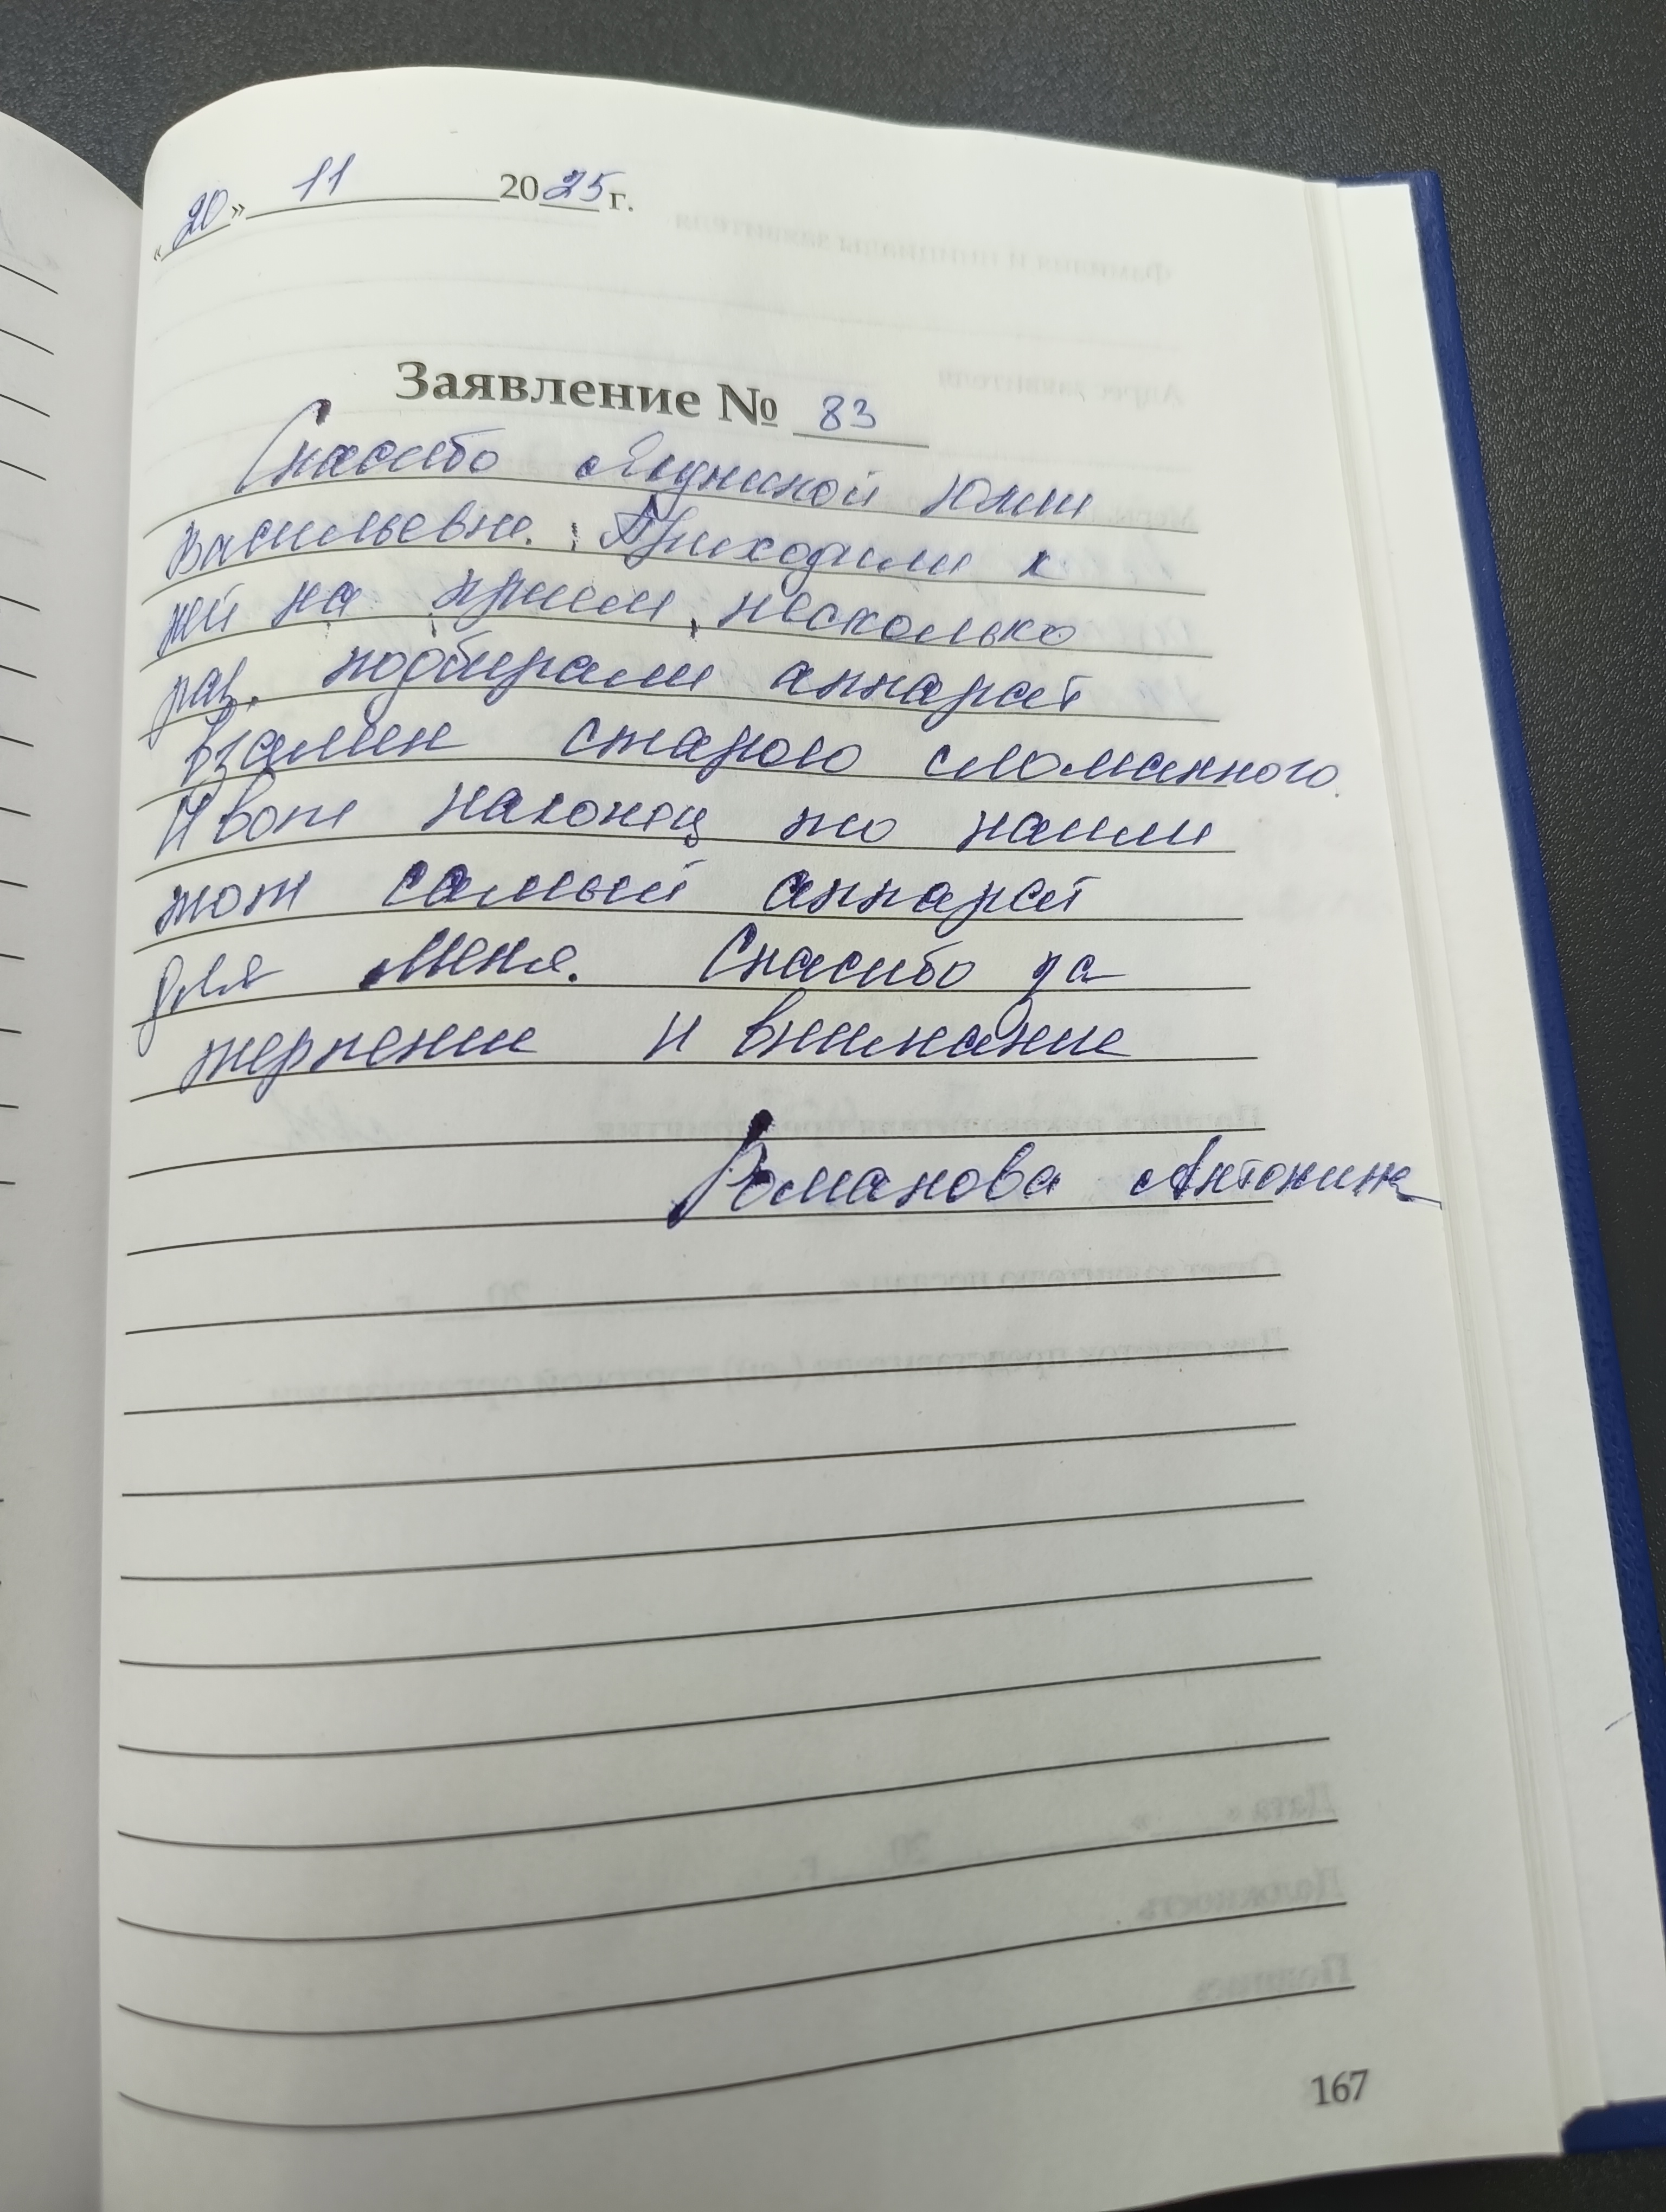 «20» 11 2025 г.
Заявление № 83
Спасибо Юлии
Васильевне. Приходили к
ней на прием, несколько
раз. подбирали аппарат
взамен старого сломанного.
И вот наконец то нашли
тот самый аппарат
для меня. Спасибо за
терпение и внимание
Романова Антонина
167